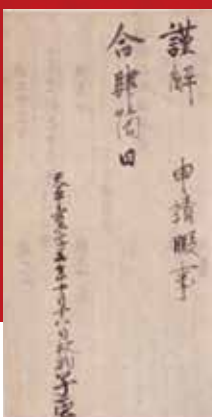 謹解 申請暇事
合肆箇日
天平寶字五年十月十八日